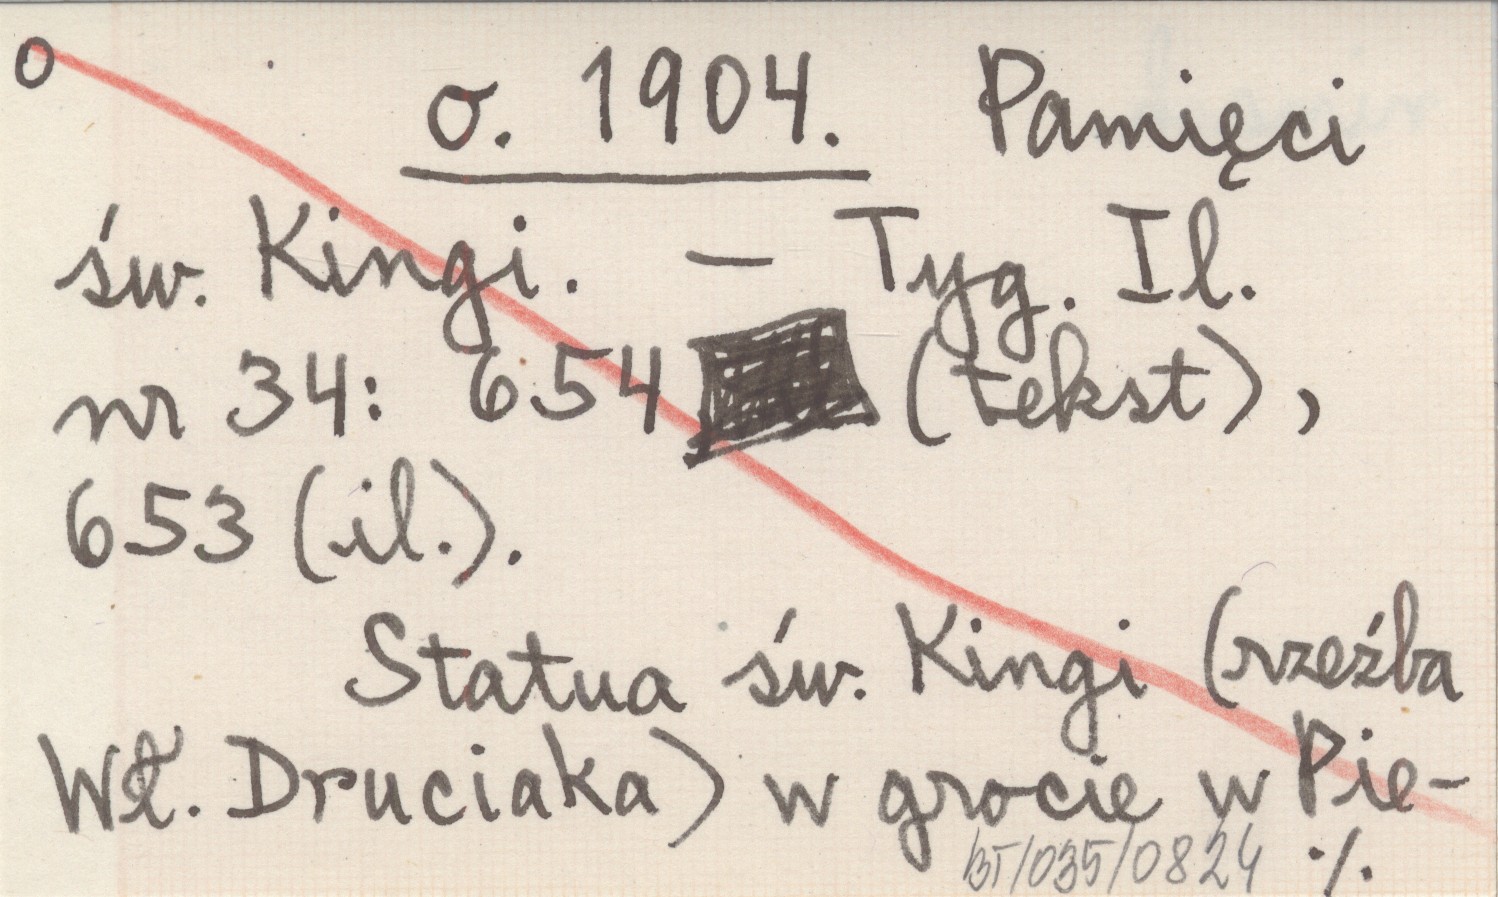 o
o. 1904. Pamięci
św. Kingi. — Tyg. Il.
nr 34: 654 (tekst),
653 (il.).
Statua św. Kingi (rzeźba
Wł. Druciaka) w grocie w Pie-
BT/035/0824 ./.